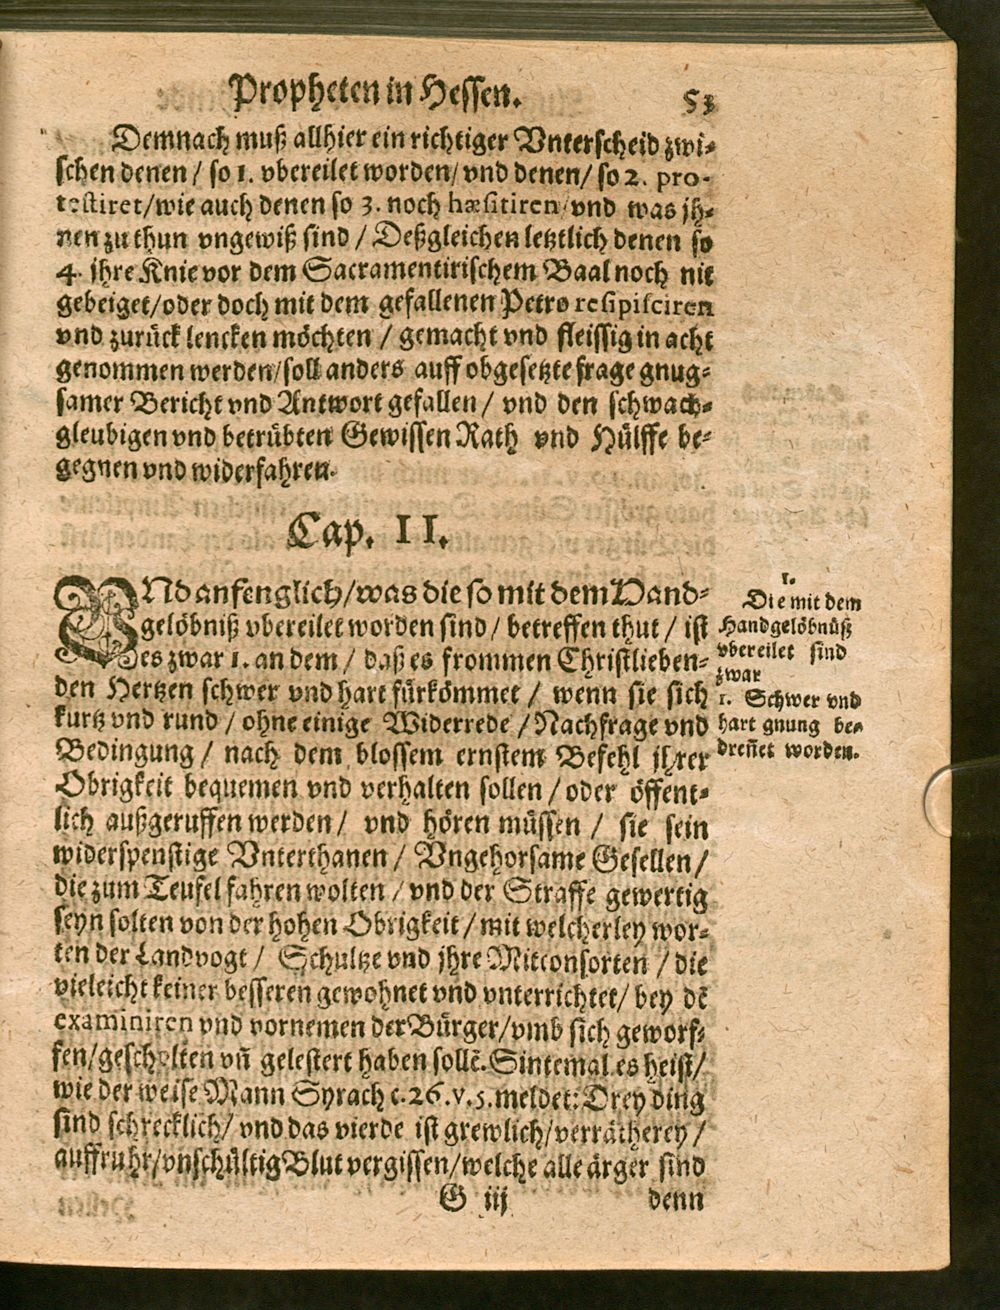 Propheten in Hessen. 53
Demnach muß allhier ein richtiger Vnterscheid zwi-
schen denen / so 1. vbereilet worden / vnd denen / so 2. pro-
testiret / wie auch denen so 3. noch hæsitiren / vnd was jh-
nen zu thun vngewiß sind / Deßgleichen letztlich denen so
4. ihre Knie vor dem Sacramentirischem Baal noch nit
gebeiget / oder doch mit dem gefallenen Petro resipisciren
vnd zurück lencken möchten / gemacht vnd fleissig in acht
genommen werden / soll anders auff obgesetzte frage gnug-
samer Bericht vnd Antwort gefallen / vnd den schwach-
gleubigen vnd betrübten Gewissen Rath vnd Hülffe be-
gegnen vnd widerfahren.
Cap. II.
VNd anfenglich / was die so mit dem Hand-
gelöbniß vbereilet worden sind / betreffen thut / ist
es zwar 1. an dem / daß es frommen Christlieben-
den Hertzen schwer vnd hart fürkömmet / wenn sie sich
kurtz vnd rund / ohne einige Widerrede / Nachfrage vnd
Bedingung / nach dem blossem ernstem Befehl jhrer
Obrigkeit bequemen vnd verhalten sollen / oder öffent-
lich außgeruffen werden / vnd hören müssen / sie sein
widerspenstige Vnterthanen / Vngehorsame Gesellen /
die zum Teufel fahren wolten / vnd der Straffe gewertig
seyn solten von der hohen Obrigkeit / mit welcherley wor-
ten der Landvogt / Schultze vnd jhre Mitconsorten / die
vieleicht keiner besseren gewohnet vnd vnterrichtet / bey dē
examiniren vnd vornemen der Bürger / vmb sich geworf-
fen / gescholten vñ gelestert haben sollē. Sintemal es heist /
wie der weise Mann Syrach c. 26. v. 5. meldet: Drey ding
sind schrecklich / vnd das vierde ist grewlich / verrätherey /
auffruhr / vnschültig Blut vergissen / welche alle ärger sind
G iij denn
1.
Die mit dem
Handgelöbnüß
vbereilet sind
zwar
1. Schwer vnd
hart gnung be-
dreñet worden.